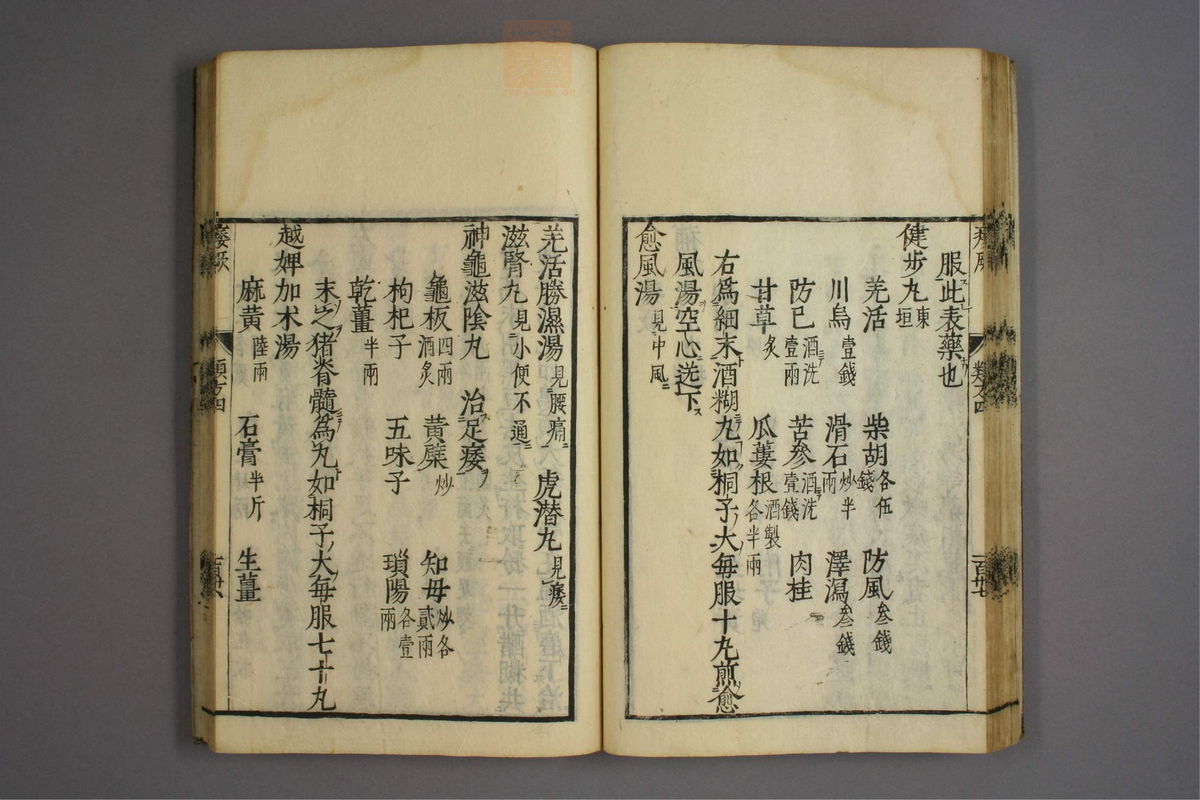 服此表藥也
健步丸東垣
羌活 柴胡各伍錢 防風叁錢
川烏壹錢 滑石炒半兩 澤瀉叁錢
防己酒洗壹兩 苦參酒洗壹錢 肉桂
甘草炙 瓜蔞根酒製各半兩
右爲細末酒糊丸如桐子大每服十丸煎愈
風湯空心送下
愈風湯見中風
類方四
羌活勝濕湯見腰痛 虎潜丸見痿
滋腎丸見小便不通
神龜滋陰丸 治足痿
龜板四兩酒炙 黄蘗炒 知毋炒各貳兩
枸杞子 五味子 瑣陽各壹兩
乾薑半兩
末之猪脊髓爲丸如桐子大每服七十丸
越婢加朮湯
麻黄陸兩 石膏半斤 生薑
類方四